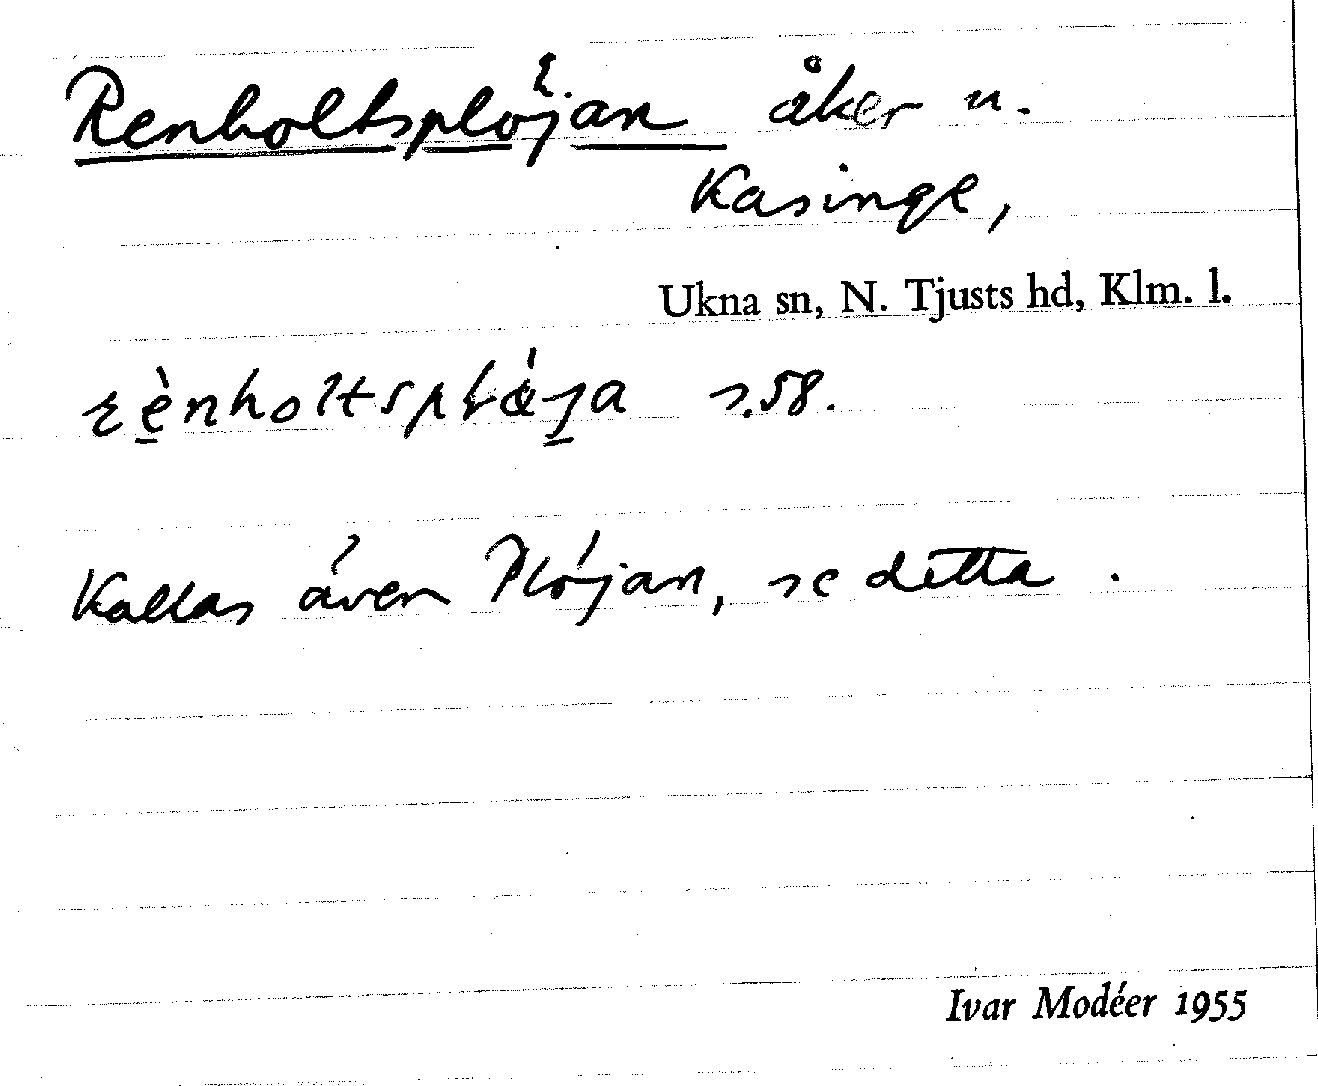 Renholtsplöjan åker u.
Kasinge,
Ukna sn, N. Tjusts hd, Klm. l.
s. 58.
Kallas även Plöjan, se detta.
Ivar Modéer 1955